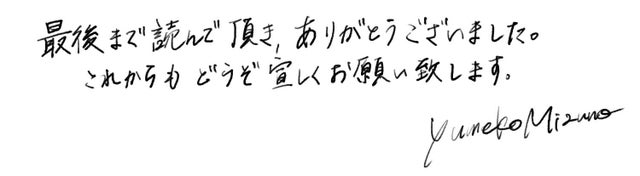 最後まで読んで頂き,ありがとうございました。
これからもどうぞ宜しくお願い致します。
Yumeko Mizuno